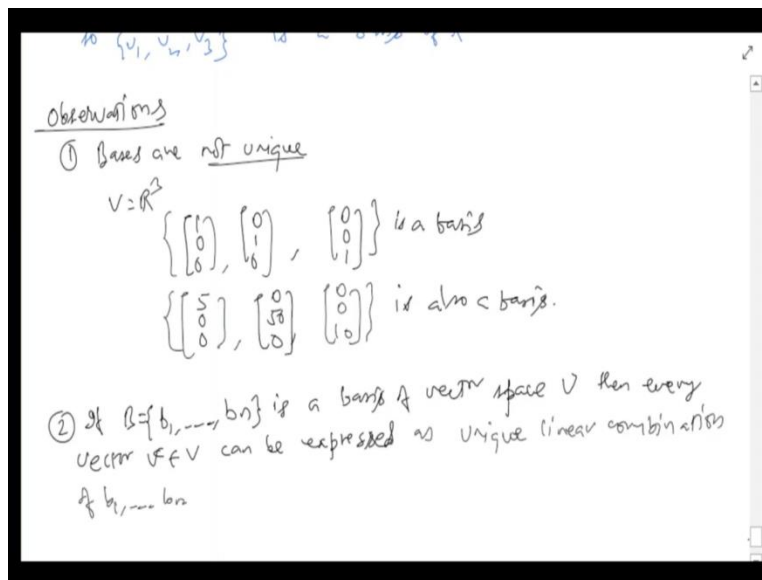 so {v1, vn, v3} is a basis of
Observations
① Bases are not unique
V=R³
{[1 0 0], [0 1 0], [0 0 1]} is a basis
{[5 0 0], [0 50 0] [0 0 10]} is also a basis.
② If B={b1,----, bn} is a basis of vector space V then every
vector v∈V can be expressed as unique linear combination
of b1,---- bn